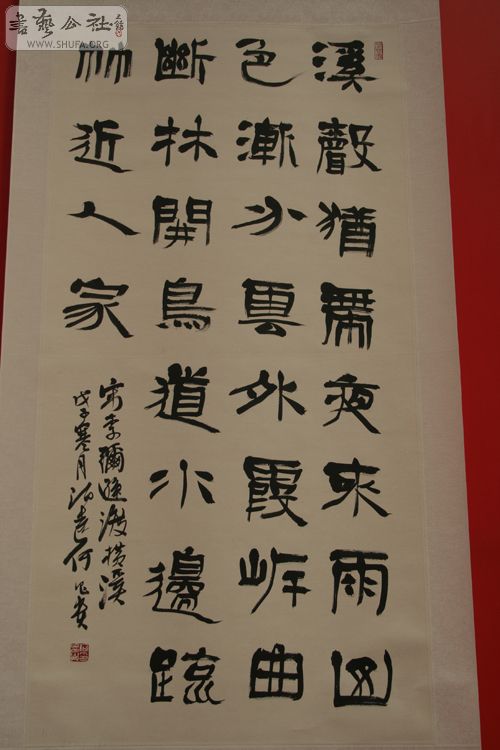 書藝公社
WWW.SHUFA.ORG
溪聲猶帶夜來雨山
色漸分雲外霞岸曲
斷林開鳥道水邊疏
竹近人家
宋李彌遜渡橫溪
戊子寒月